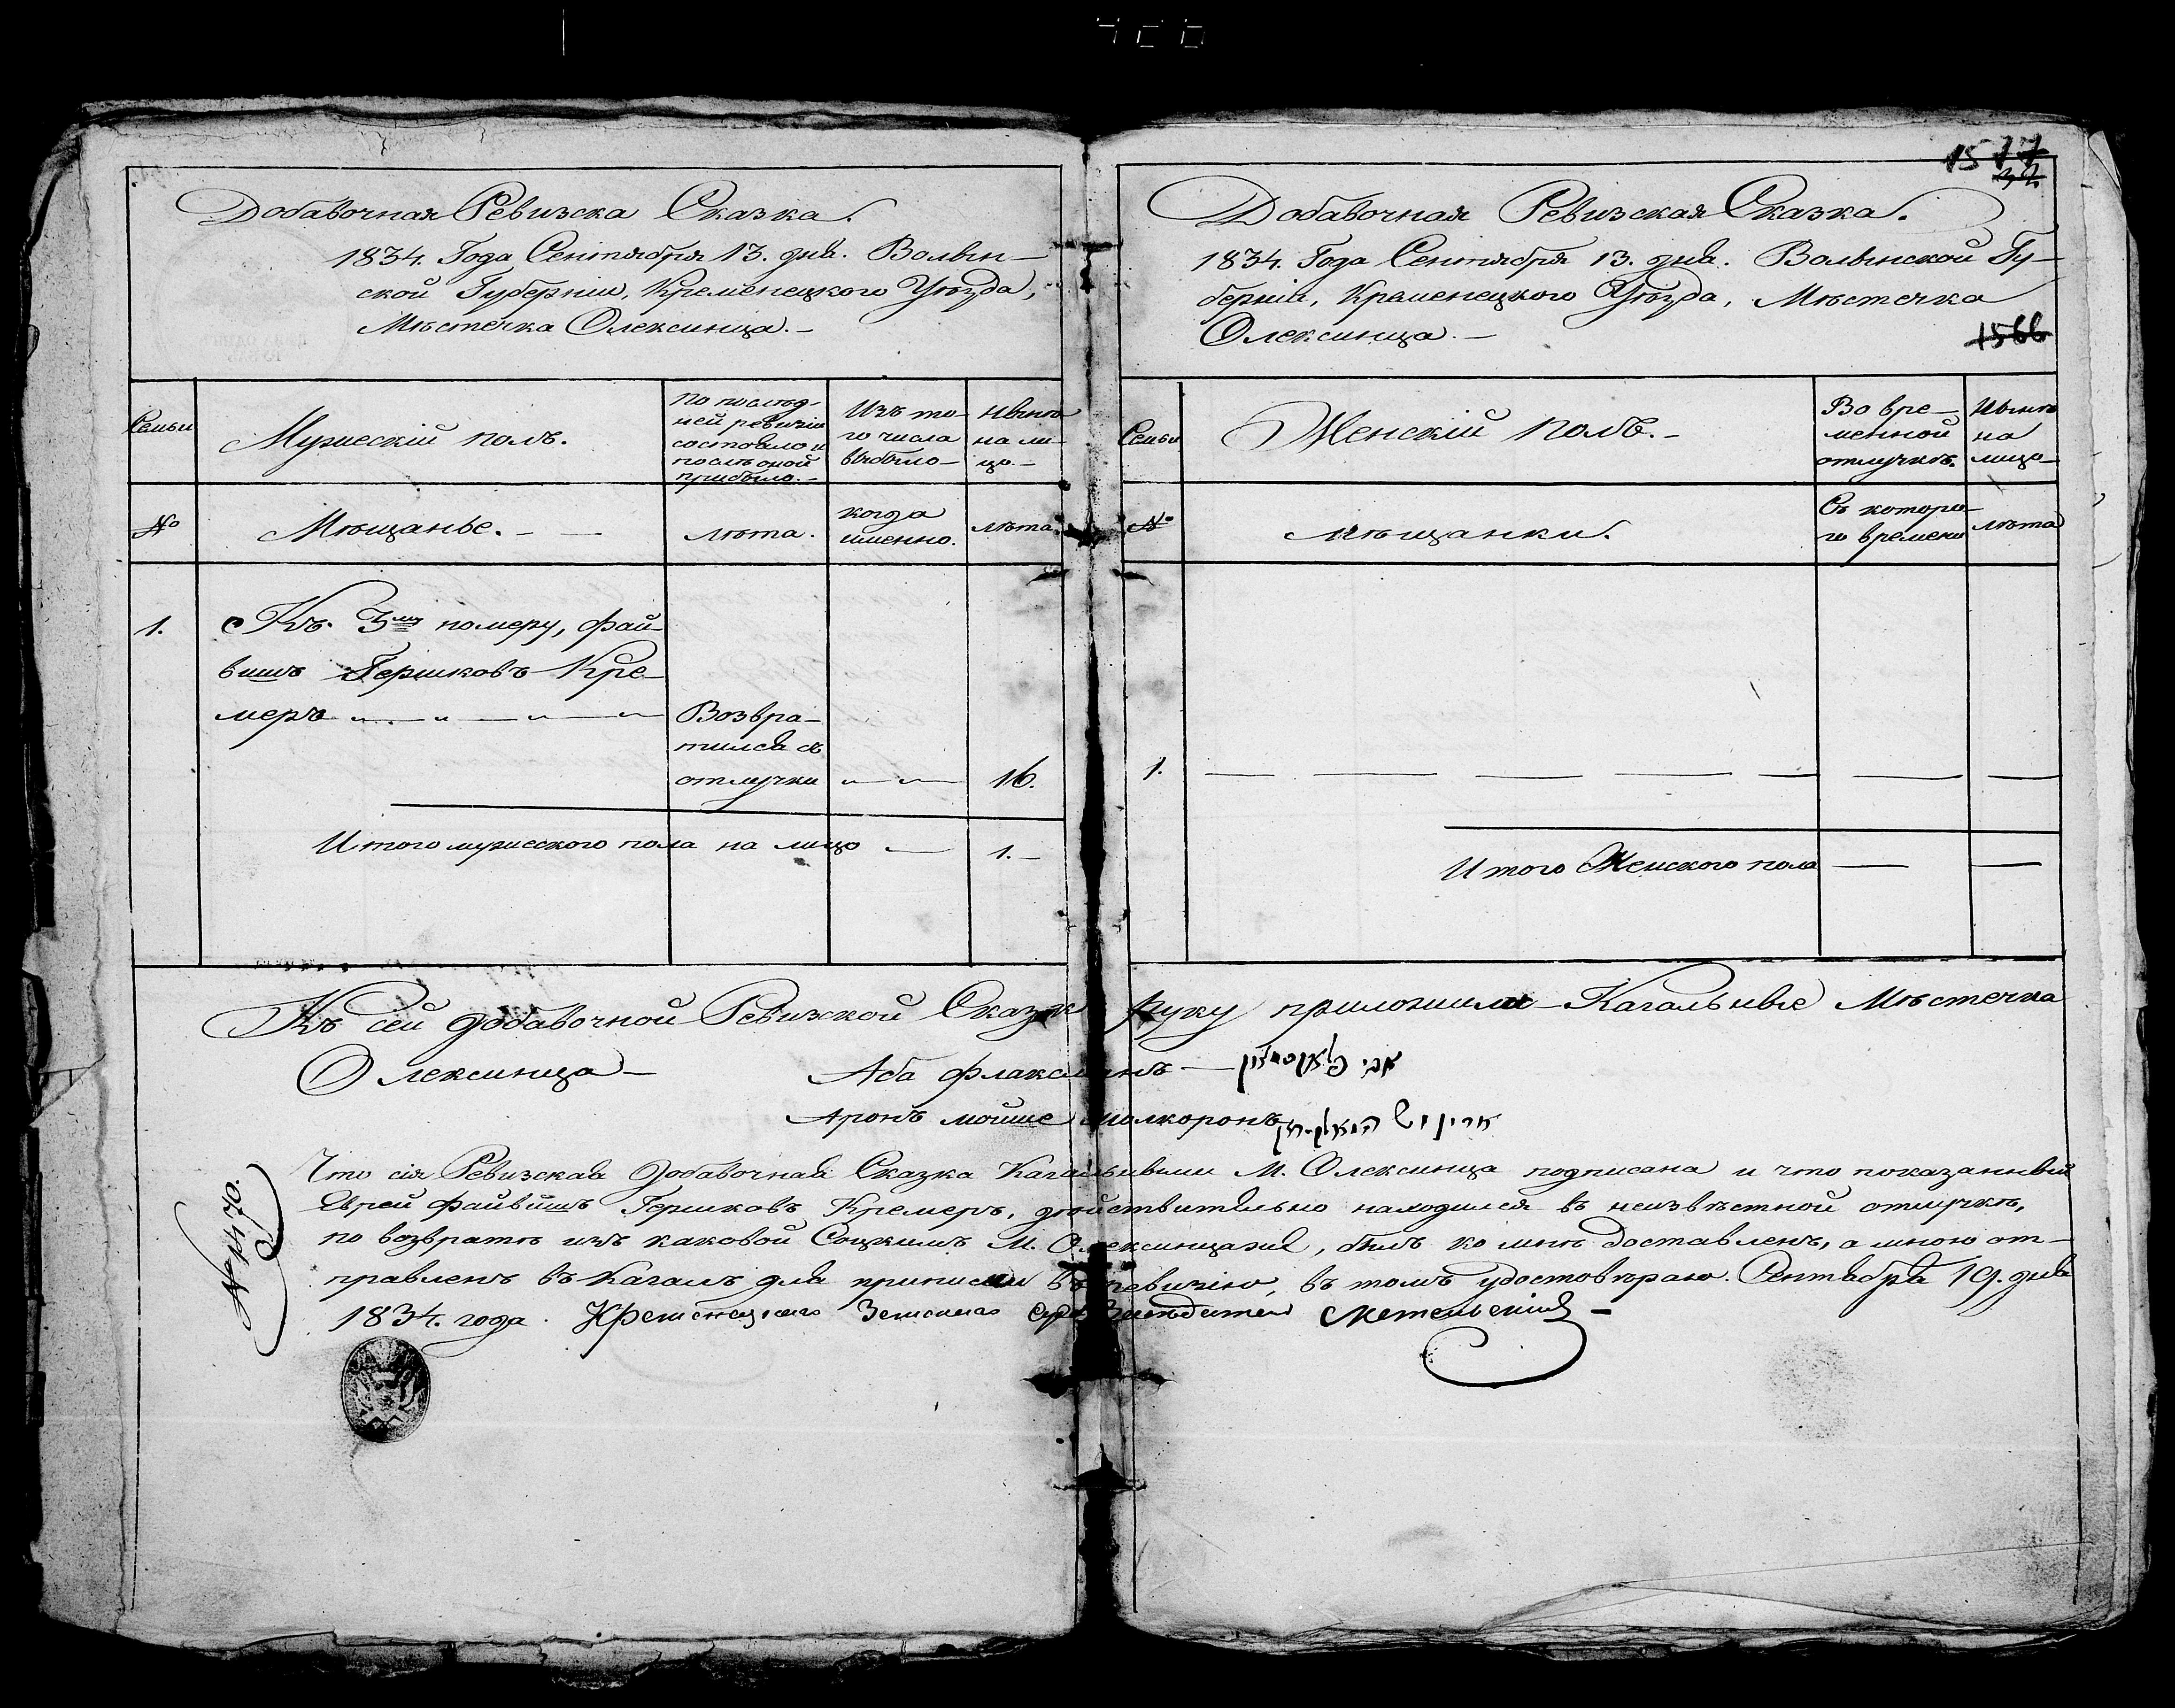 Добавочная Ревизска Сказка.
1834. Года Сентября 13. дня. Волын-
ской Губернии, Кременецкого Уѣзда,
Мѣстечка Олексинца.-
Семьи
Мужескій полъ.
По послѣд-
ней ревизіи
состояло и
послѣ оной
прибыло.-
Изъ то-
го числа
выбыло-
Нынѣ
на ли-
цо.-
№
Мѣщанье.
лѣта.
когда
именно.
лѣта.
1.
Къ. 3му номеру, Фай-
вишъ Гершковъ Кре-
меръ
Возвра-
тился съ
отлучки
16.
Итого мужеского пола на лицо — 1.-
1577
Добавочная Ревизская Сказка.
1834. Года Сентября 13. дня. Волынской Гу-
берніи, Кременецкого Уѣзда, Мѣстечка
Олексинца.-
1566
Семьи
Женскій полъ.-
Во вре-
менной
отлучкѣ.
Нынѣ
на
лицо-
№
мѣщанки.
Съ которо-
го времени
лѣта
1.
Итого Женского пола
Къ сей добавочной Ревизской Сказкѣ руку приложили Кагальные Мѣстечка
Олексинца-
Аба Флаксманъ
Аронъ мойше
Что сія Ревизская добавочная Сказка Кагальными М. Олексинца подписана и что показанный
Еврей Файвишъ Гершковъ Кремеръ, дѣйствительно находился въ неизвѣстной отлучкѣ,
по возвратѣ изъ каковой Соцкимъ М. Олексинца, былъ ко мнѣ доставленъ, а мною от-
правленъ въ Кагалъ для приписки въ ревизію, въ томъ удостовѣраю. Сентября 19. дня
1834. года. Кременецкаго Земскаго Суда Засѣдатель
№ 1470.